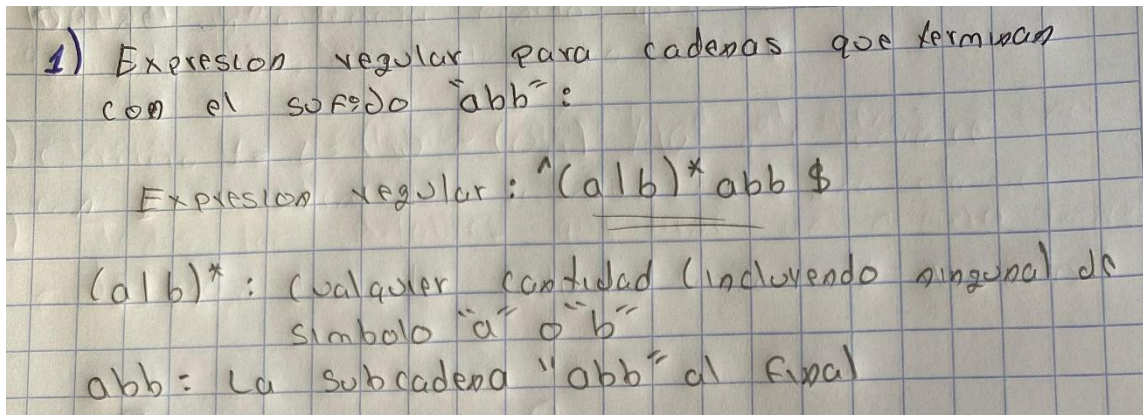 1) Expresion regular para cadenas que terminan
con el sufijo "abb":
Expresion regular: ^(a|b)* abb $
(a|b)*: Cualquier cantidad (incluyendo ninguna) de
simbolo "a" o "b"
abb: La subcadena "abb" al final